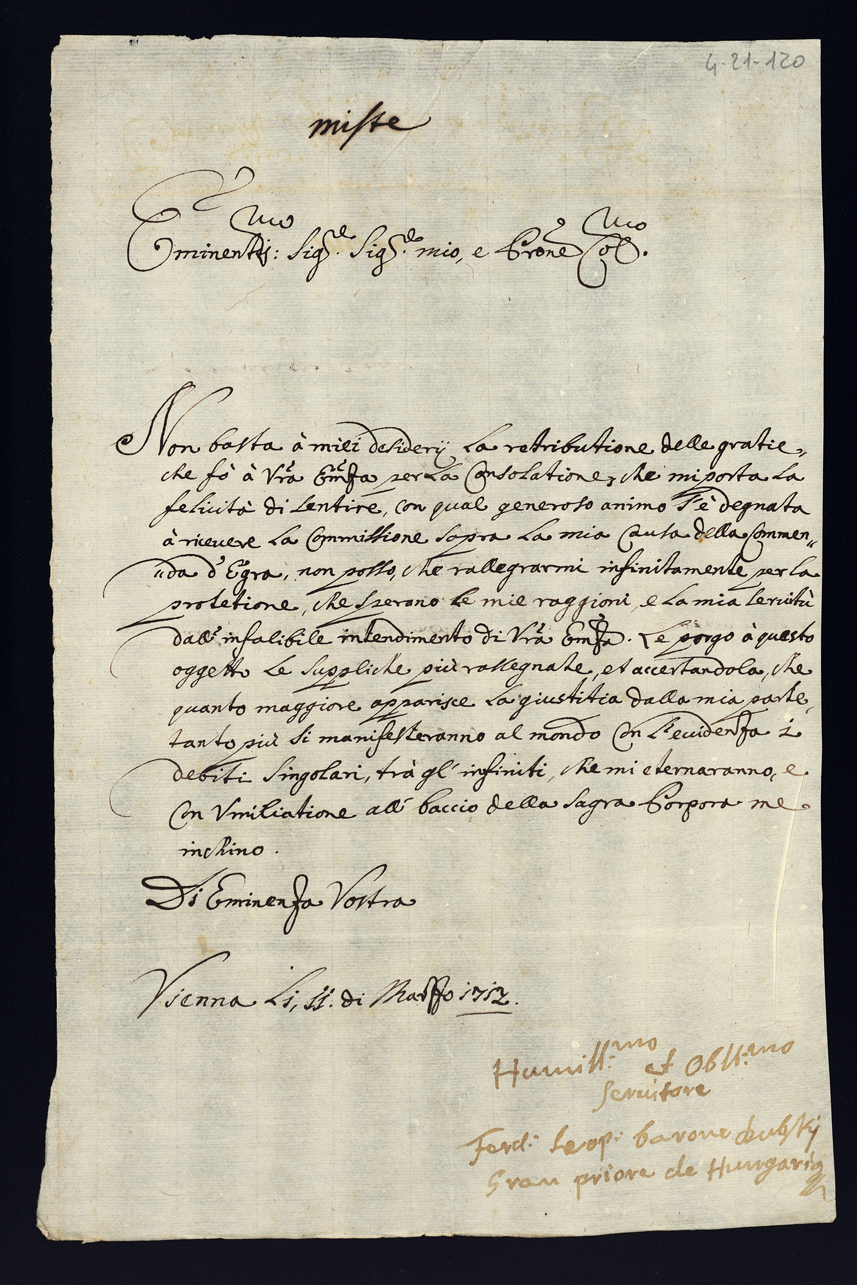 4-21-120
miste
Eminentis:mo Sig:re Sig:re mio, e Prone Col:mo
Non basta à miei desiderij la retributione delle gratie,
che fò à Vra Emza per la Consolatione, che mi porta la
felicità di sentire, con qual generoso animo s'è degnata
à riceuere la Commissione sopra la mia Causa della Commen„
„da d'Egra, non posso, che rallegrarmi infinitamente per la
protetione, che sperano le mie raggioni, e la mia seruitù
dall' infalibile intendimento di Vra Emza. Le porgo à questo
oggetto le suppliche più rassegnate, et accertandola, che
quanto maggiore apparisce la giustitia dalla mia parte,
tanto più si manifesteranno al mondo con l'euidenza i
debiti singolari, trà gl' infiniti, che mi eternaranno, e
con Vmiliatione all' baccio della sagra Porpora me
inchino.
Di Eminenza Vostra
Vienna li, 11. di Marzo 1712.
Humill:mo et Obll:mo
seruitore
Ferdi: Leop: barone
Gran priore de Hungaria